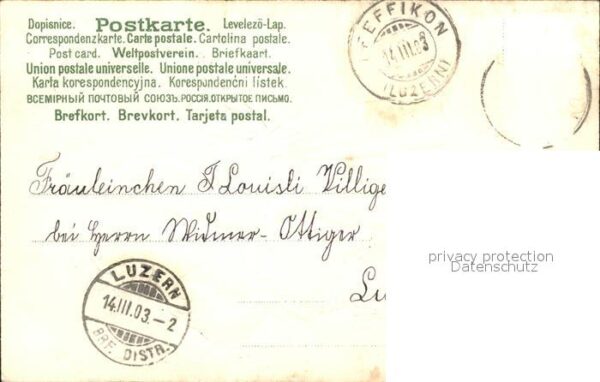 Dopisnice. Postkarte. Levelező-Lap.
Correspondenzkarte. Carte postale. Cartolina postale.
Post card. Weltpostverein. Briefkaart.
Union postale universelle. Unione postale universale.
Karta korespondencyjna. Korespondenční lístek.
ВСЕМІРНЫЙ ПОЧТОВЫЙ СОЮЗЪ. РОССІЯ. ОТКРЫТОЕ ПИСЬМО.
Brefkort. Brevkort. Tarjeta postal.
PFEFFIKON
14.III.03
(LUZERN)
Fräuleinchen Louisli Villige
bei Herrn Widmer-Ottiger
Lu
privacy protection
Datenschutz
LUZERN
14.III.03.-2
BRF. DISTR.